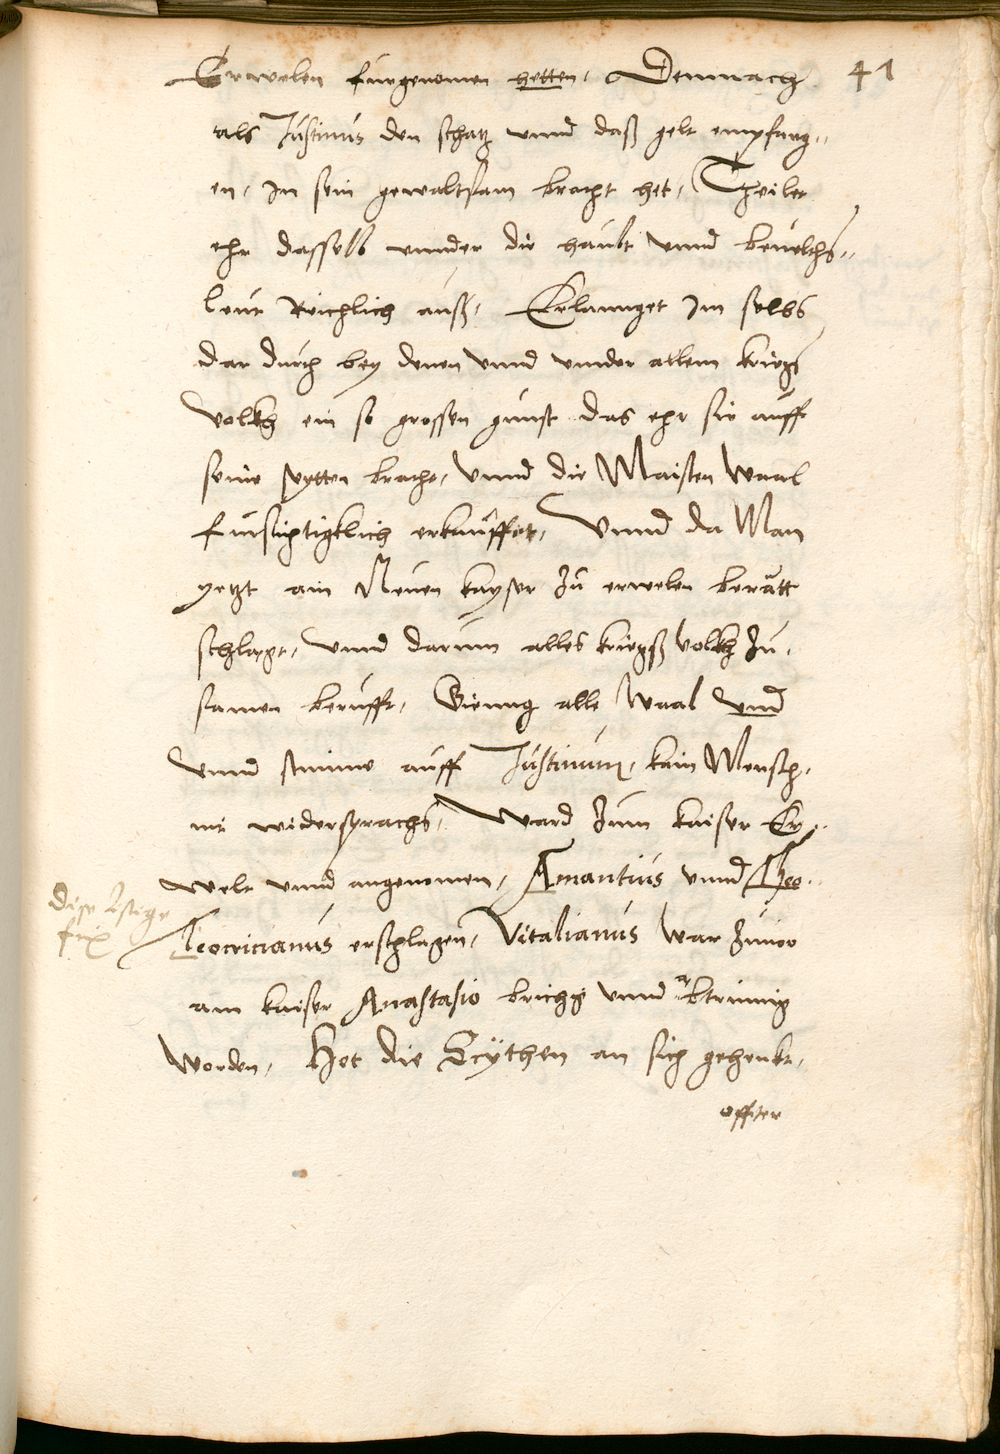 41
Erwelen furgenomen hetten, Demnach
als Justinus den schatz unnd daß gelt empfang,,
en, in sein gewaltsam bracht het, Theilet
ehr dasselb unnder die haubt unnd bevelchs,,
leut Reichlich auß, Erlannget im selbs
dar durch bey denen unnd under allem kriegs
volkh ein so grossen gunst das ehr sie auff
seine seytten bracht, Unnd die Maisten Waal
fursichtigklich erkauffet, Unnd da Man
yetzt ain Neuen kayser zu erwelen beratt
schlagt, unnd darum alles kriegß volkh zu,
samen berufft, Gienng alle Waal und
unnd stimme auff Justinum, kain Mensch,
nit widersprachs, Ward zum kaiser Er,,
welt unnd angenomen, Amantius unnd Theo,,
Teocricianus erschlagen, Vitalianus war zuvoo
am kaiser Anastasio brichig unnd abtrinnig
worden, Het die Scythen an sich gehenkt,
offter